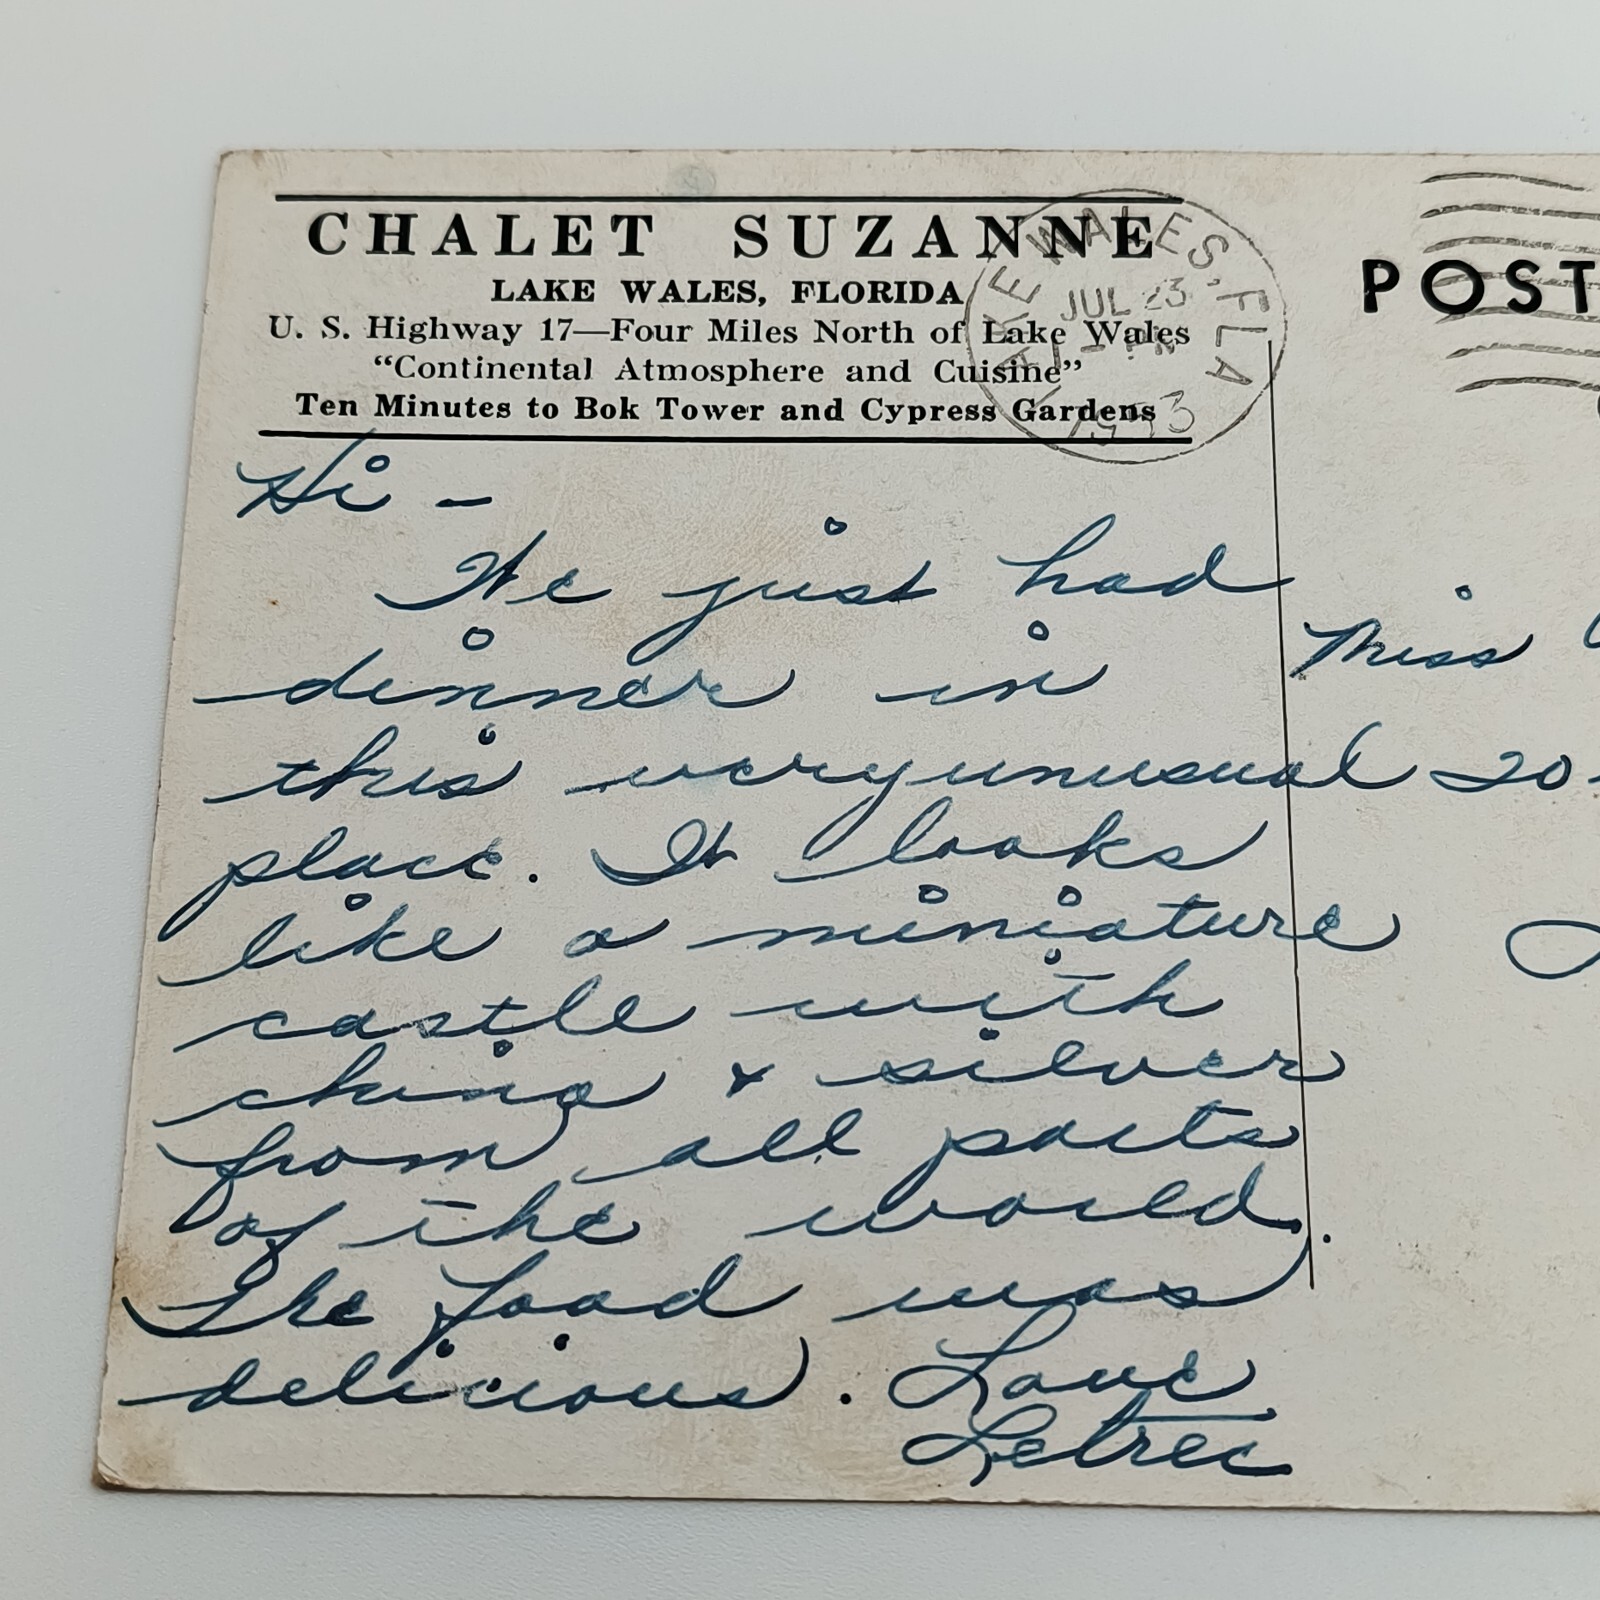 CHALET SUZANNE
LAKE WALES, FLORIDA
U. S. Highway 17—Four Miles North of Lake Wales
"Continental Atmosphere and Cuisine"
Ten Minutes to Bok Tower and Cypress Gardens
LAKE WALES, FLA
JUL 23
1953
POST
Hi –
We just had
dinner in
this very unusual
place. It looks
like a miniature
castle with
china & silver
from all parts
of the world.
The food was
delicious. Love
Letrec
Miss
20